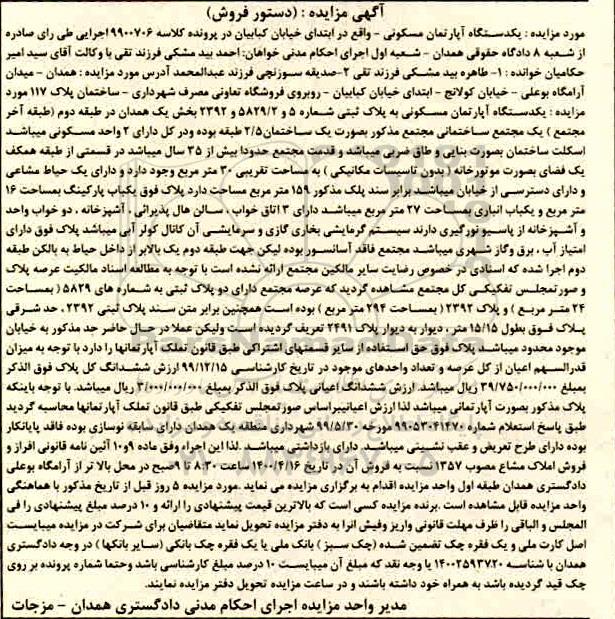 آگهی مزایده : (دستور فروش)
مورد مزایده : یکدستگاه آپارتمان مسکونی - واقع در ابتدای خیابان کبابیان در پرونده کلاسه ۹۹۰۰۷۰۶ اجرایی طی رای صادره
از شعبه ۸ دادگاه حقوقی همدان - شعبه اول اجرای احکام مدنی خواهان: احمد بید مشکی فرزند تقی با وکالت آقای سید امیر
حکامیان خوانده : ۱- طاهره بید مشکی فرزند تقی ۲-صدیقه سوزنچی فرزند عبدالمحمد آدرس مورد مزایده : همدان - میدان
آرامگاه بوعلی - خیابان کولانج - ابتدای خیابان کبابیان - روبروی فروشگاه تعاونی مصرف شهرداری - ساختمان پلاک ۱۱۷ مورد
مزایده : یکدستگاه آپارتمان مسکونی به پلاک ثبتی شماره ۵ و ۵۸۲۹/۲ و ۲۳۹۲ بخش یک همدان در طبقه دوم (طبقه آخر
مجتمع ) یک مجتمع ساختمانی مجتمع مذکور بصورت یک ساختمان۲/۵ طبقه بوده ودر کل دارای ۲ واحد مسکونی میباشد
اسکلت ساختمان بصورت بنایی و طاق ضربی میباشد و قدمت مجتمع حدودا بیش از ۳۵ سال میباشد در قسمتی از طبقه همکف
یک فضای بصورت موتورخانه ( بدون تاسیسات مکانیکی ) به مساحت تقریبی ۳۰ متر مربع وجود دارد و دارای یک حیاط مشاعی
و دارای دسترسی از خیابان میباشد برابر سند پلک مذکور ۱۵۹ متر مربع مساحت دارد پلاک فوق یکباب پارکینگ بمساحت ۱۶
متر مربع و یکباب انباری بمساحت ۲۷ متر مربع میباشد دارای ۳ اتاق خواب ، سالن هال پذیرائی ، آشپزخانه ، دو خواب واحد
و آشپزخانه از پاسیو نورگیری دارند سیستم گرمایشی بخاری گازی و سرمایشی آن کانال کولر آبی میباشد پلاک فوق دارای
امتیاز آب ، برق وگاز شهری میباشد مجتمع فاقد آسانسور بوده لیکن جهت طبقه دوم یک بالابر از داخل حیاط به بالکن طبقه
دوم اجرا شده که اسنادی در خصوص رضایت سایر مالکین مجتمع ارائه نشده است با توجه به مطالعه اسناد مالکیت عرصه پلاک
و صورتمجلس تفکیکی کل مجتمع مشاهده گردید که عرصه مجتمع دارای دو پلاک ثبتی به شماره های ۵۸۲۹ ( بمساحت
۲۴ متر مربع ) و پلاک ۲۳۹۲ ( بمساحت ۲۹۴ متر مربع ) بوده است همچنین برابر متن سند پلاک ثبتی ۲۳۹۲ ، حد شرقی
پلاک فوق بطول ۱۵/۱۵ متر ، دیوار به دیوار پلاک ۲۴۹۱ تعریف گردیده است ولیکن عملا در حال حاضر حد مذکور به خیابان
موجود محدود میباشد پلاک فوق حق استفاده از سایر قسمتهای اشتراکی طبق قانون تملک آپارتمانها را دارد با توجه به میزان
قدرالسهم اعیان از کل عرصه و تعداد واحدهای موجود در تاریخ کارشناسی ۹۹/۱۲/۱۵ ارزش ششدانگ کل پلاک فوق الذکر
بمبلغ ۳۹/۷۵۰/۰۰۰/۰۰۰ ریال میباشد. ارزش ششدانگ اعیانی پلاک فوق الذکر بمبلغ ۳/۰۰۰/۰۰۰/۰۰۰ ریال میباشد. با توجه باینکه
پلاک مذکور بصورت آپارتمانی میباشد لذا ارزش اعیانیبراساس صورتمجلس تفکیکی طبق قانون تملک آپارتمانها محاسبه گردید
طبق پاسخ استعلام شماره ۹۹۰۵۳۰۴۱۴۷۰ مورخه ۹۹/۵/۳۰ شهرداری منطقه یک همدان دارای سابقه نوسازی بوده فاقد پایانکار
بوده دارای طرح تعریض و عقب نشینی میباشد. دارای بازداشتی میباشد .لذا این اجراء وفق ماده ۹و۱۰ آئین نامه قانونی افراز و
فروش املاک مشاع مصوب ۱۳۵۷ نسبت به فروش آن در تاریخ ۱۴۰۰/۴/۱۶ ساعت ۸:۳۰ تا ۹صبح در محل بالا تر از آرامگاه بوعلی
دادگستری همدان طبقه اول واحد مزایده اقدام به برگزاری مزایده می نماید .مورد مزایده ۵ روز قبل از تاریخ مذکور با هماهنگی
واحد مزایده قابل مشاهده است .برنده مزایده کسی است که بالاترین قیمت پیشنهادی را ارائه و ۱۰ درصد مبلغ پیشنهادی را فی
المجلس و الباقی را ظرف مهلت قانونی واریز وفیش انرا به دفتر مزایده تحویل نماید متقاضیان برای شرکت در مزایده میبایست
اصل کارت ملی و یک فقره چک تضمین شده (چک سبز ) بانک ملی یا یک فقره چک بانکی (سایر بانکها ) در وجه دادگستری
همدان با شناسه ۱۴۰۰۲۵۹۳۷۲۰ یا وجه نقد که مبلغ آن میبایست ۱۰ درصد مبلغ کارشناسی باشد وحتما شماره پرونده بر روی
چک قید گردیده باشد به همراه خود داشته باشند و در ساعت مزایده تحویل دفتر مزایده نمایند.
مدیر واحد مزایده اجرای احکام مدنی دادگستری همدان - مزجات